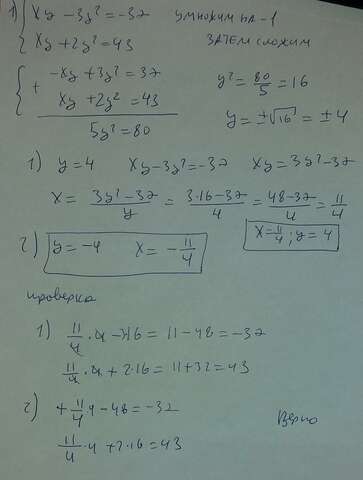 1) { xy - 3y² = -37 умножим на -1
xy + 2y² = 43 затем сложим
{ + -xy + 3y² = 37 y² = 80/5 = 16
xy + 2y² = 43
5y² = 80 y = ±√16 = ±4
1) y = 4 xy - 3y² = -37 xy = 3y² - 37
x = (3y² - 37)/y = (3·16 - 37)/4 = (48 - 37)/4 = 11/4
2) y = -4 x = -11/4 x = 11/4; y = 4
проверка
1) 11/4 · 4 - 316 = 11 - 48 = -37
11/4 · 4 + 2·16 = 11 + 32 = 43
2) + 11/4 4 - 48 = -37
11/4 · 4 + 2·16 = 43 Верно